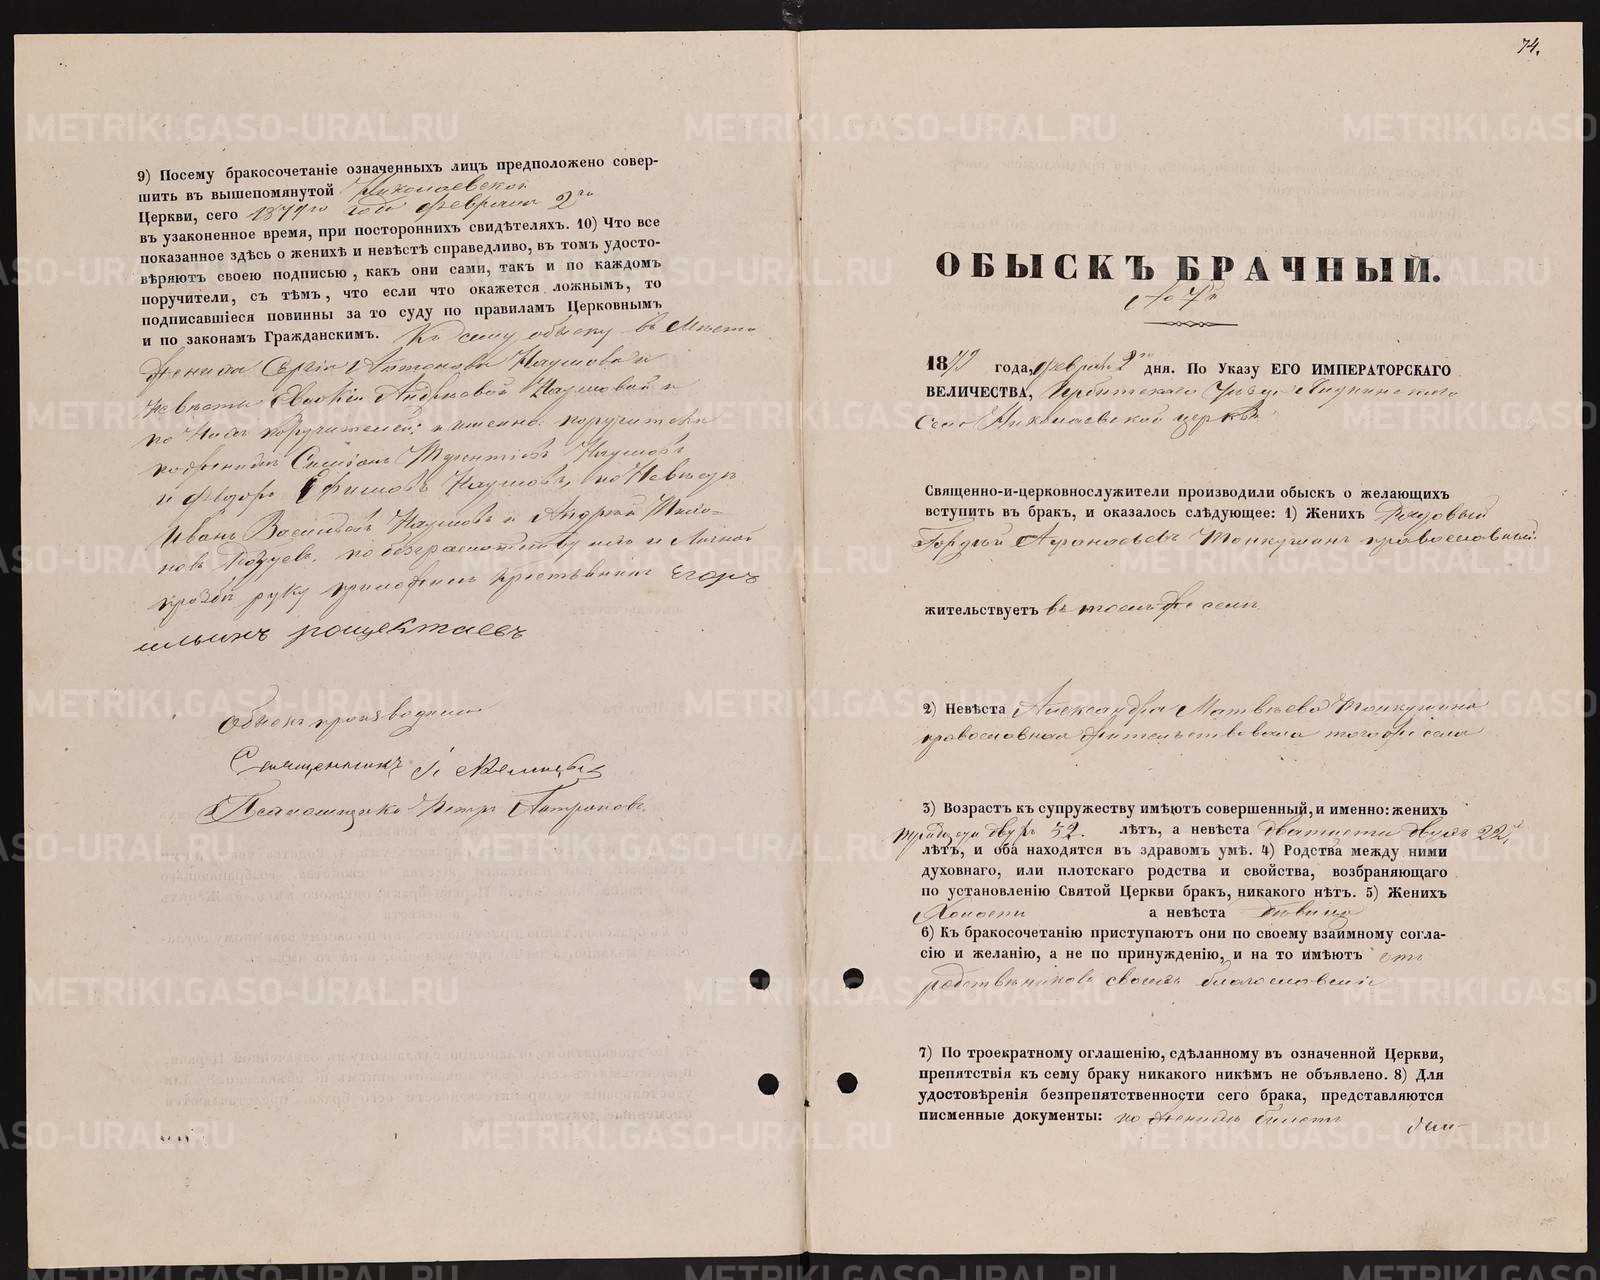 74.
9) Посему бракосочетаніе означенныхъ лицъ предположено совер-
шить въ вышепомянутой Николаевской
Церкви, сего 1879го года февраля 2го
въ узаконенное время, при постороннихъ свидѣтеляхъ. 10) Что все
показанное здѣсь о женихѣ и невѣстѣ справедливо, въ томъ удосто-
вѣряютъ своею подписью, какъ они сами, такъ и по каждомъ
поручители, съ тѣмъ, что если что окажется ложнымъ, то
подписавшіеся повинны за то суду по правиламъ Церковнымъ
и по законамъ Гражданскимъ. Къ сему обыску въ мѣсто
жениха Сергія Антонова Наумова и
невѣсты Евдокіи Андреевой Наумовой и
по нихъ поручителей: а именно: поручители
по женихѣ Симіонъ Терентіевъ Наумовъ
и Федоръ Ефимовъ Наумовъ, по невѣстѣ
Иванъ Васильевъ Наумовъ и Андрей
новъ по безграмотству ихъ и личной
прозбѣ руку приложилъ крестьянинъ Егоръ
ильинъ рощектаевъ
Обыскъ производили
Священникъ І.
Псаломщикъ Петръ
ОБЫСКЪ БРАЧНЫЙ.
№ 7й
1879 года, февраля 2го дня. По Указу ЕГО ИМПЕРАТОРСКАГО
ВЕЛИЧЕСТВА, Ирбитскаго Уѣзда
Села Николаевской церкви
Священно-и-церковнослужители производили обыскъ о желающихъ
вступить въ бракъ, и оказалось слѣдующее: 1) Женихъ Рядовый
Гордѣй Афонасьевъ Тонкушинъ православный
жительствуетъ въ томъ же селѣ
2) Невѣста Александра Матвѣева Тонкушина
православная жительствовала того же села
3) Возрастъ къ супружеству имѣютъ совершенный, и именно: женихъ
тридцати двухъ 32. лѣтъ, а невѣста дватцети двухъ 22,
лѣтъ, и оба находятся въ здравомъ умѣ. 4) Родства между ними
духовнаго, или плотскаго родства и свойства, возбраняющаго
по установленію Святой Церкви бракъ, никакого нѣтъ. 5) Женихъ
Холостъ а невѣста Дѣвица
6) Къ бракосочетанію приступаютъ они по своему взаимному согла-
сію и желанію, а не по принужденію, и на то имѣютъ отъ
родственниковъ своихъ благословеніе
7) По троекратному оглашенію, сдѣланному въ означенной Церкви,
препятствія къ сему браку никакого никѣмъ не объявлено. 8) Для
удостовѣренія безпрепятственности сего брака, представляются
писменные документы: по женихѣ билетъ
METRIKI.GASO-URAL.RU